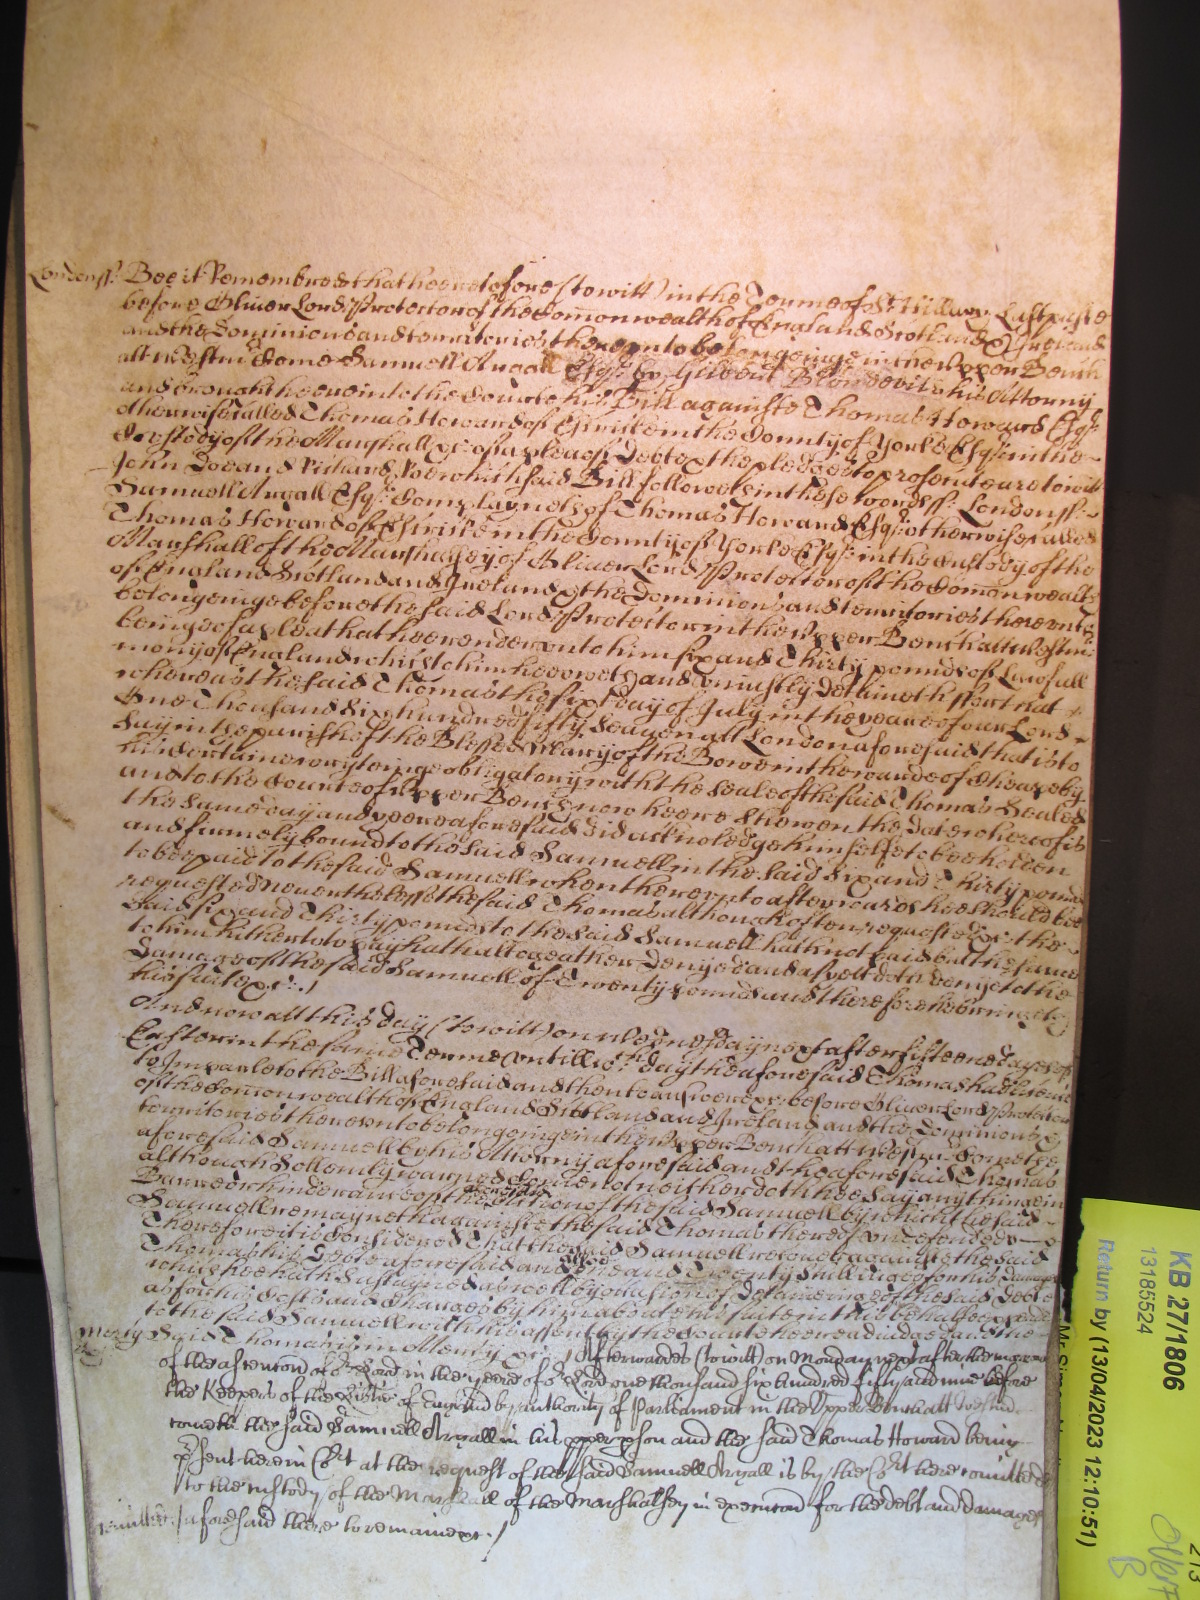 Londonss. Bee it Remembred that heeretofore (to witt) in the Terme of St Hillary Last paste
before Oliver Lord Protector of the Comonwealth of England Scotland & Ireland
and the Dominions and territories thereunto belongeinge in the Upper Bench
att Westmr Came Samuell Argall Esqr. by Gilbert Blomdevile his Attorny
and brought heere into the Courte his Bill againste Thomas Howard Esqr.
otherwise called Thomas Howard of Eskricke in the County of Yorke Esqr. in the
Custody of the Marshall &c. of a plea of Debt & the pledges to prosecute are to witt
John Doe and Richard Roe which said Bill followes in these words ss. London ss.
Samuell Argall Esqr. Complayneth of Thomas Howard Esqr. otherwise called
Thomas Howard of Eskricke in the County of Yorke Esqr. in the Custody of the
Marshall of the Marshalsey of Oliver Lord Protector of the Comonwealth
of England Scotland and Ireland & the Dominions and territories thereunto
belongeinge before the said Lord Protector in the Upper Bench att Westmr.
being of a plea that hee render unto him six and Thirty pounds of Lawfull
mony of England which to him hee oweth and uniustly detaineth ffor that
whereas the said Thomas the sixt day of July in the yeare of our Lord
One Thousand Six hundred fifty Seaven att London aforesaid that is to
Say in the parish of the Blessed Mary of the Bowe in the warde of Cheape by
his Certaine wryteinge obligatory with the Seale of the said Thomas Sealed
and to the Courte of Upper Bench now heere Shewen the Date whereof is
the same day and yeere aforesaid did acknoledge himselfe to bee holden
and firmely bound to the said Samuell in the said Six and Thirty pounds
to bee paid to the said Samuell when thereunto afterwards hee should bee
requested Neverthelesse the said Thomas although often requested &c. the
said six and Thirty pounds to the said Samuell hath not paid but the same
to him hitherto to pay hath altogeather denyed and as yett doth deny to the
Damage of the said Samuell of Twenty pounds and therefore he bringeth
his suite &c. /
And now att this day (to witt) on wednesday next after fifteene dayes of
Easter in the same Terme untill wch. day the aforesaid Thomas had licence
to Imparle to the Bill aforesaid and then to answere &c. before Oliver Lord Protector
of the Comonwealth of England Scotland and Ireland and the Dominions &
territories thereunto belongeing in the Upper Bench att Westmr. Cometh the
aforesaid Samuell by his Attorny aforesaid and the aforesaid Thomas
although Sollemly warned Come not neither doth hee Say any thinge in
Barre or hinderance of the aforesaid action of the said Samuell by which the said
Samuell remayneth against the said Thomas thereof undefended
Therefore it is Considered That the said Samuell recover against the said
Thomas his Debt aforesaid and alsoe and Twenty Shillings for his Damages
which hee hath Sustayned as well by occasion of Detaineing of the said Debt
as for his Costs and Charges by him about his suite in this behalfe expended
to the said Samuell with his assent by the Courte heere adiudged and the
Mercy Said Thomas in Mercy &c. / Afterwardes (to witt) on Monday next after the morrow
of the ascention of or. Lord in the yeere of or Lord one thousand six hundred fifty and nine before
the Keepers of the Libtie of England by authority of Parliament in the Upper Bench att Westmr.
cometh the said Samuell Argall in his pper pson and the said Thomas Howard being
psent here in Court at the request of the said Samuell Argall is by the Court here comitted
to the custody of the Marshall of the Marshalsey in execution for the debt and damages
Comitted. / aforesaid there to remaine &c. /
KB 27/1806
13185524
Return by (13/04/2023 12:10:51)
213